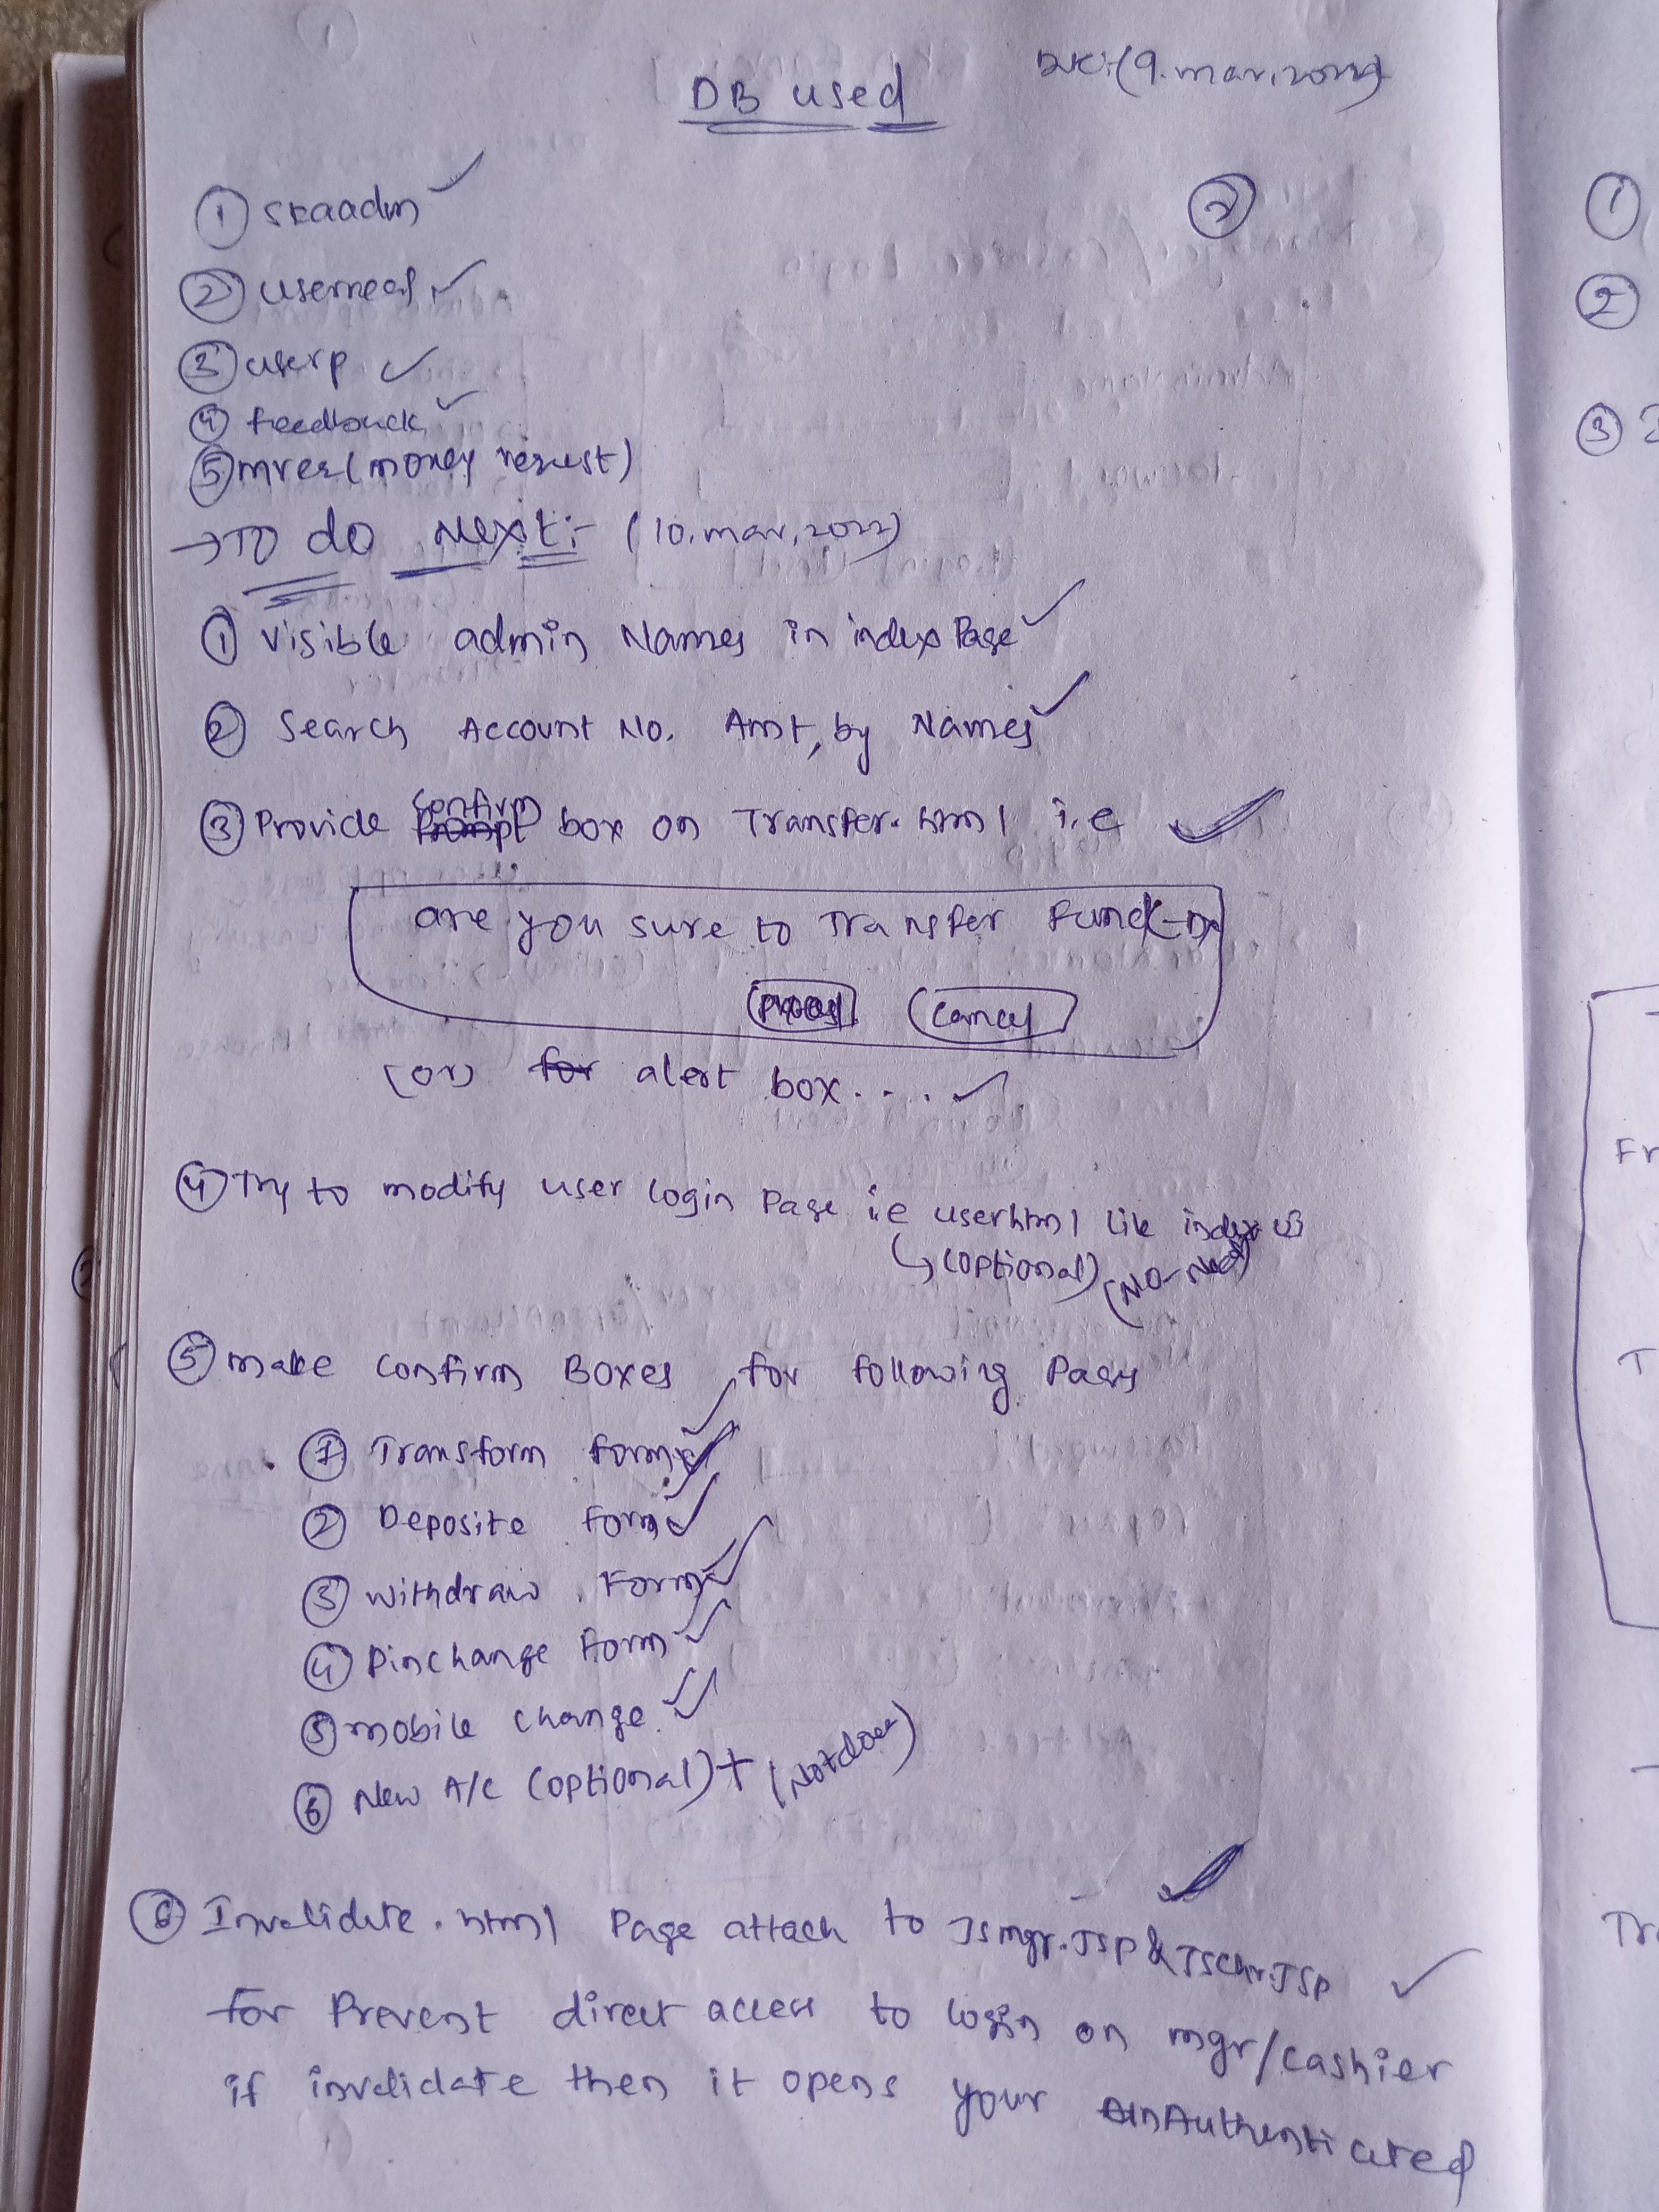 DB used
(9.mar,2022)
② 
① skaadm ✓
② userreg ✓
③ userp ✓
④ feedback ✓
⑤ mreq (money request)
→ To do Next:- (10.mar,2022)
① Visible admin Names in index Page ✓
② Search Account No. Amt, by Names ✓
③ Provide confirm box on Transfer.html i.e ✓
are you sure to Transfer Fund
Cancel
(or) for alert box.... ✓
④ Try to modify user login Page i.e userhtml like index
↳ (optional) (No-Need)
⑤ make confirm Boxes for following Pages
① Transform form ✓
② Deposite form ✓
③ Withdraw Form ✓
④ Pinchange form ✓
⑤ mobile change ✓✓
⑥ New A/C (optional) + (Notdone)
⑥ Invalidate.html Page attach to Jsmgr.JSP & JSchr.JSP ✓
for Prevent direct access to login on mgr/cashier
if invalidate then it opens your unAuthenticated
①
②
③
Fr
T
Tra